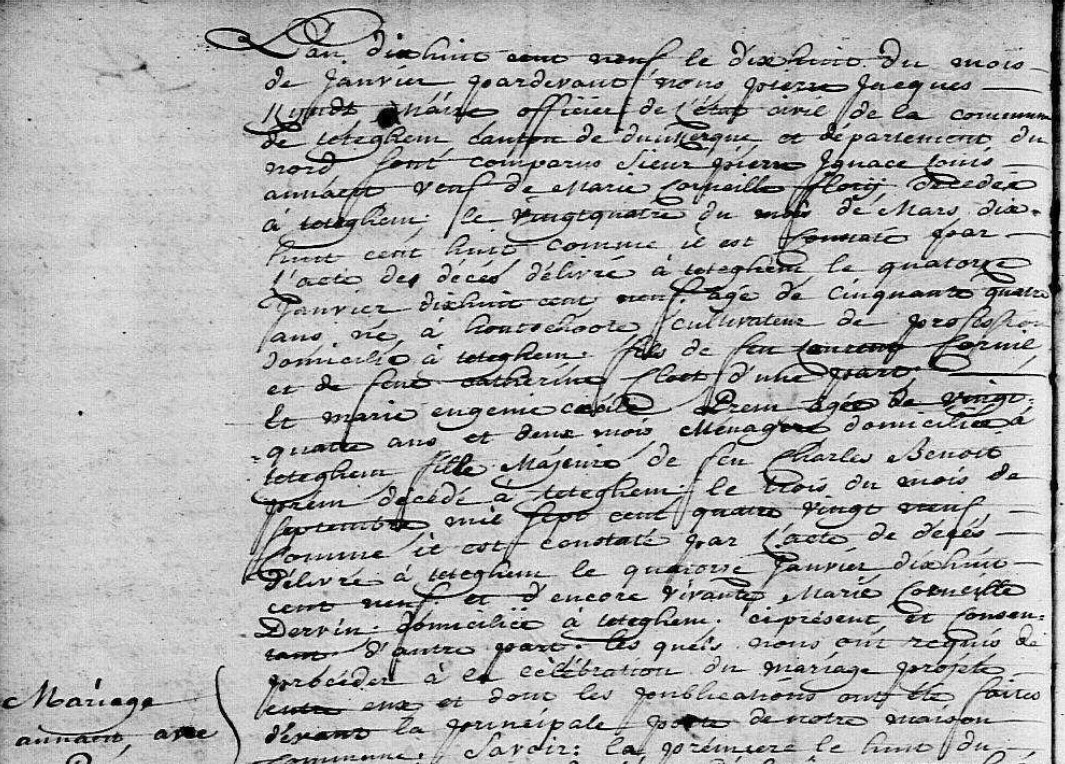 L'an dixhuit cent neuf le dixhuit du mois
de Janvier pardevant nous pierre Jacques
Ryndt maire officier de l'état civil de la commune
de teteghem canton de dunkerque et département du
nord sont comparus Sieur pierre Ignace Louis
annaert veuf de Marie Corneille florij décédée
à teteghem le vingtquatre du mois de Mars dix=
huit cent huit comme il est constaté par
l'acte des décès délivré à teteghem le quatorze
Janvier dixhuit cent neuf. agé de cinquante quatre
ans né à hontschoote cultivateur de profession
domicilié à teteghem. fils de feu
et de feue catherine d'une part.
Et marie eugenie cécile Prem agée de vingt=
=quatre ans et deux mois Ménagere domiciliée à
teteghem fille Majeure de feu Charles Benoit
prem décédé à teteghem le trois du mois de
septembre mil sept cent quatre vingt neuf
comme il est constaté par l'acte de décés
délivré à teteghem le quatorze Janvier dixhuit
cent neuf. et d'encore vivante Marie Corneille
Dervin. domiciliée à teteghem. ci présent et consen=
tant d'autre part. les quels nous ont requis de
procéder à la célébration du mariage projeté
entre eux et dont les publications ont été faites
devant la principale porte de notre maison
commune. Savoir: la prémiere le huit du
Mariage
annaert avec